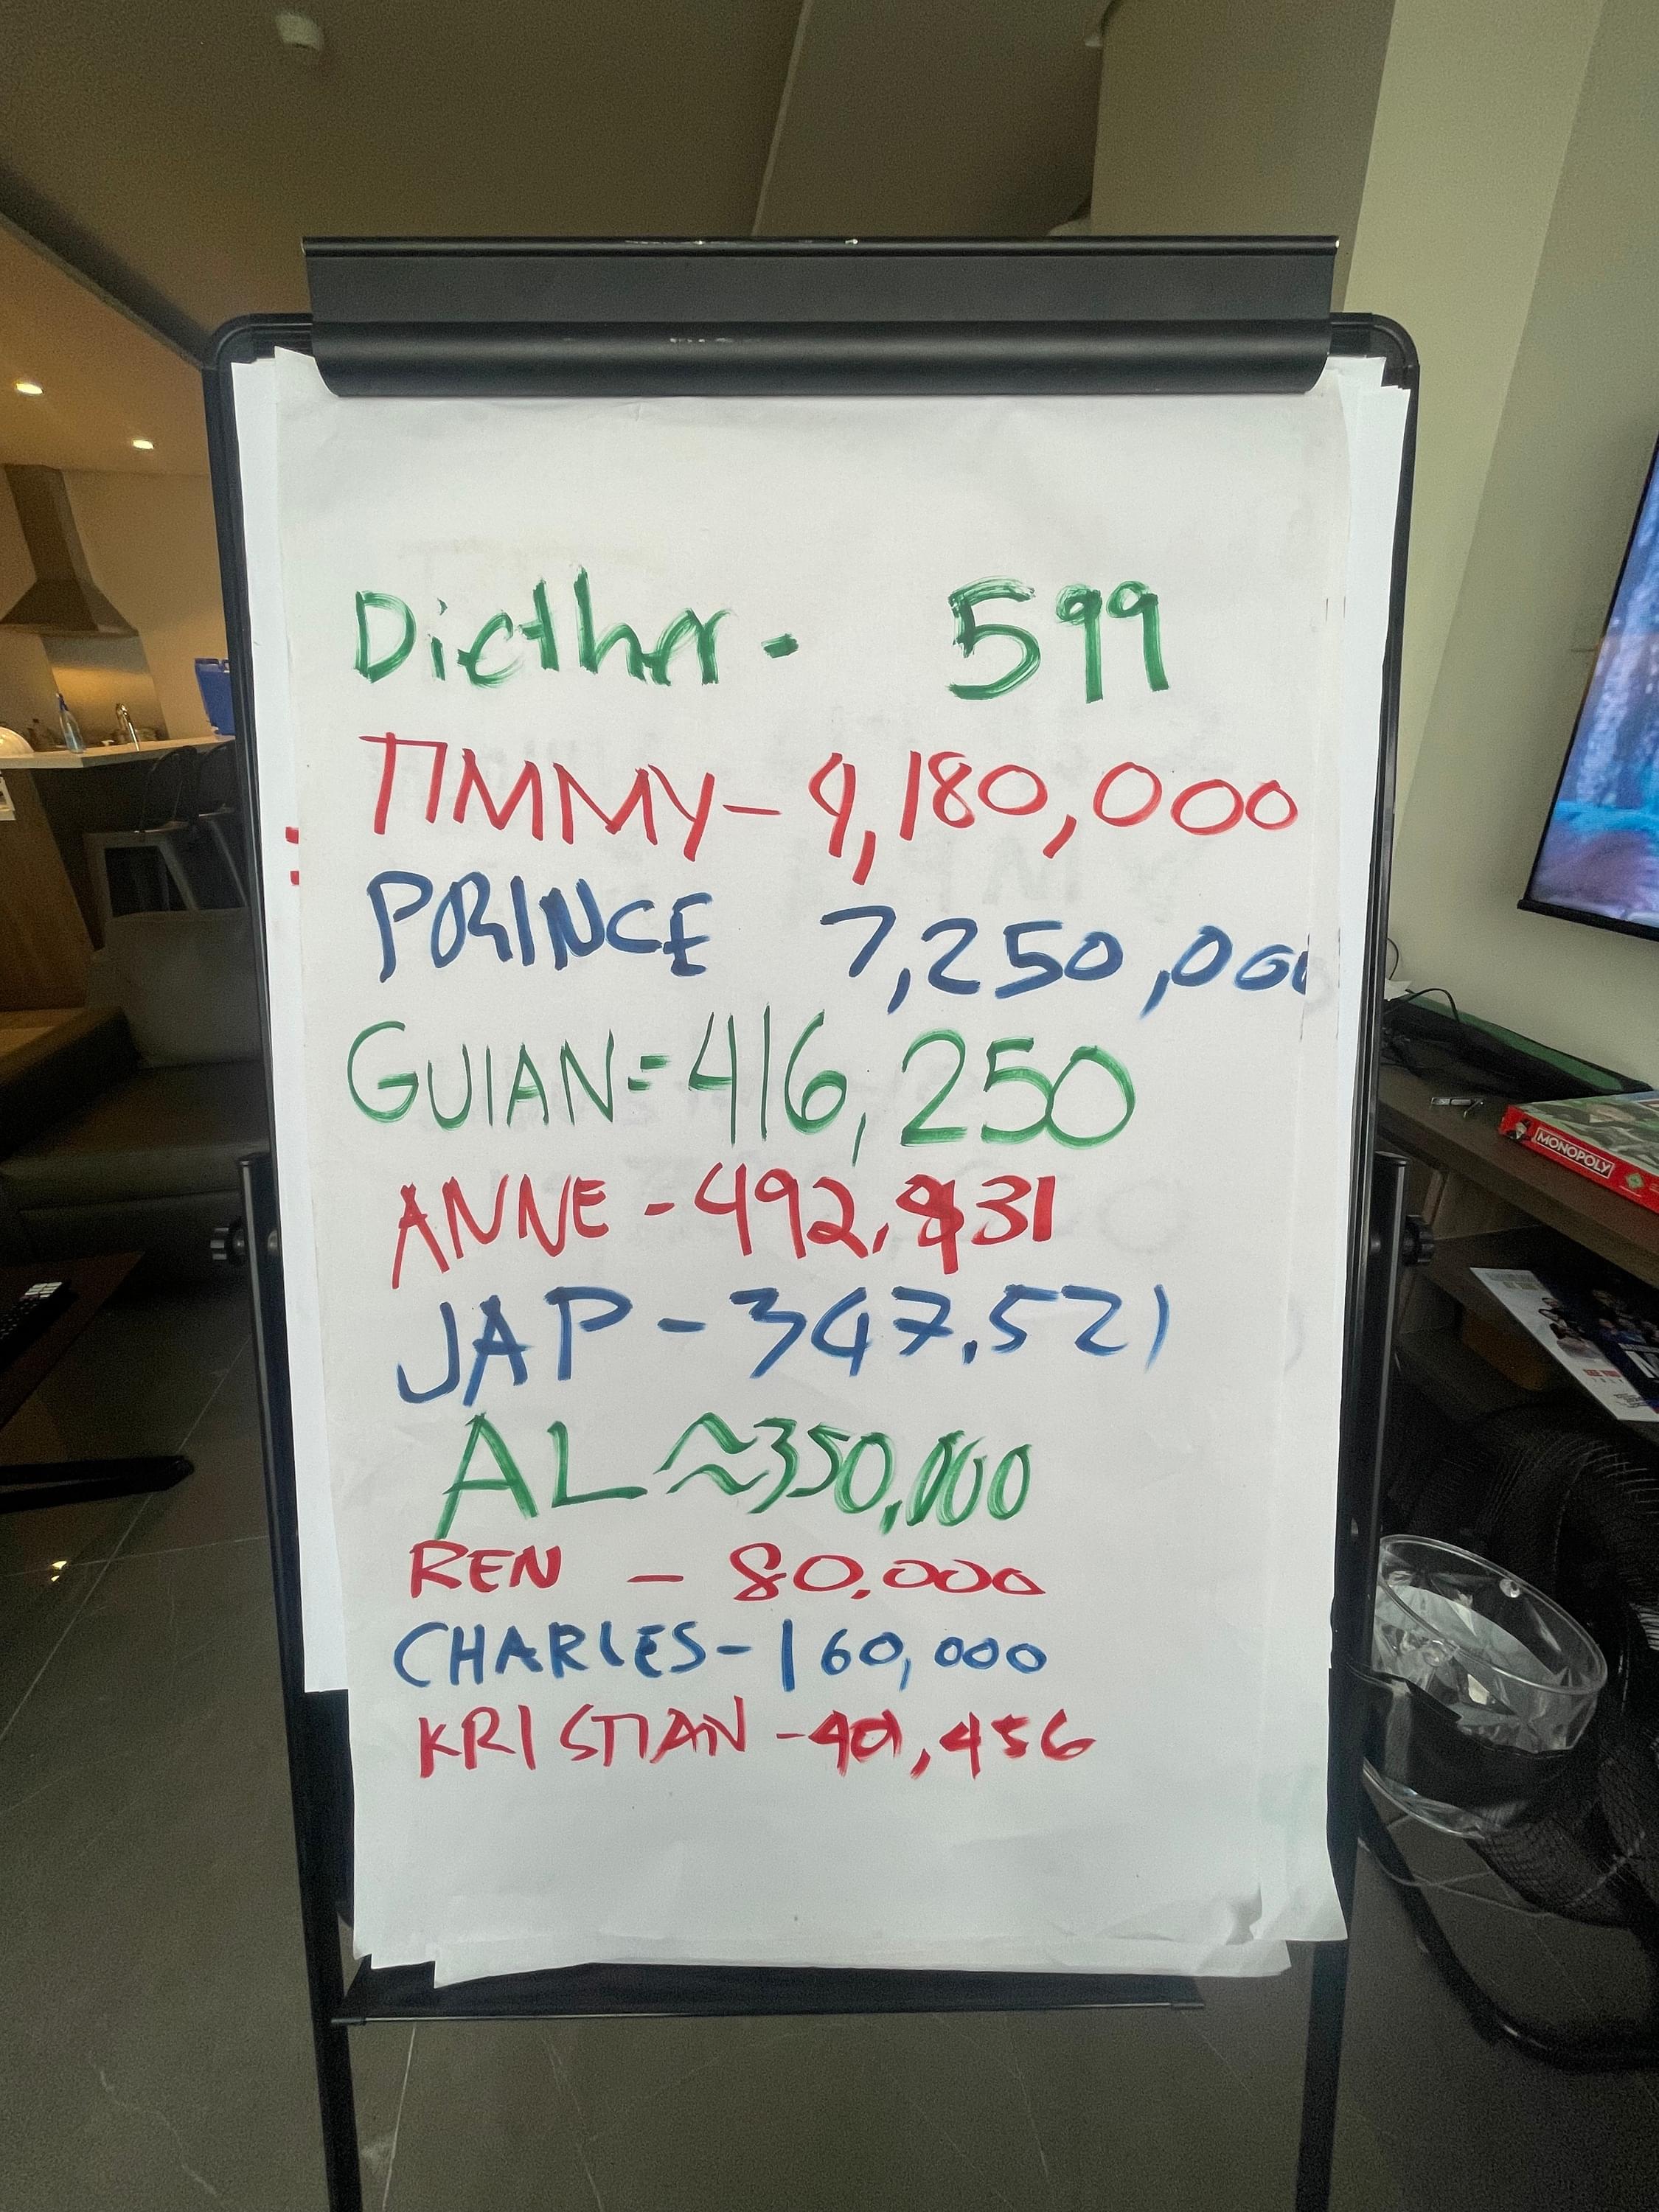 Diether - 599
TIMMY - 9,180,000
PRINCE 7,250,000
GUIAN = 416,250
ANNE - 492,931
JAP - 347.521
AL ≈ 350,000
REN - 80.000
CHARLES - 160,000
KRISTIAN - 401,456
MONOPOLY